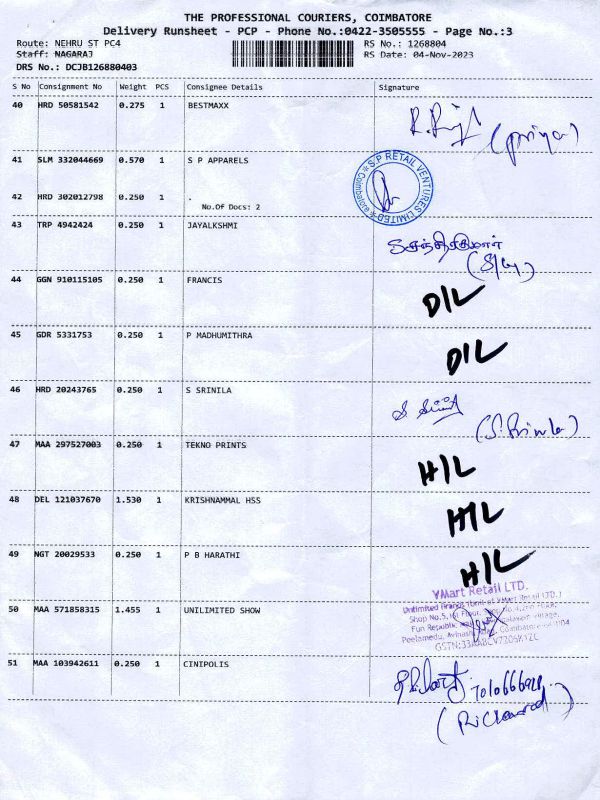 THE PROFESSIONAL COURIERS, COIMBATORE
Delivery Runsheet - PCP - Phone No.:0422-3505555 - Page No.:3
Route: NEHRU ST PC4 RS No.: 1268804
Staff: NAGARAJ RS Date: 04-Nov-2023
DRS No.: DCJB126880403
S No Consignment No Weight PCS Consignee Details Signature
40 HRD 50581542 0.275 1 BESTMAXX
(priya)
41 SLM 332044669 0.570 1 S P APPARELS
S.P RETAIL VENTURES LIMITED
Coimbatore
42 HRD 302012798 0.250 1 .
No.Of Docs: 2
43 TRP 4942424 0.250 1 JAYALKSHMI
44 GGN 910115105 0.250 1 FRANCIS
D/L
45 GDR 5331753 0.250 1 P MADHUMITHRA
D/L
46 HRD 20243765 0.250 1 S SRINILA
(S. Srinila)
47 MAA 297527003 0.250 1 TEKNO PRINTS
H/L
48 DEL 121037670 1.530 1 KRISHNAMMAL HSS
H/L
49 NGT 20029533 0.250 1 P B HARATHI
H/L
VMart Retail LTD.
50 MAA 571858315 1.455 1 UNLIMITED SHOW
51 MAA 103942611 0.250 1 CINIPOLIS
(Richard)